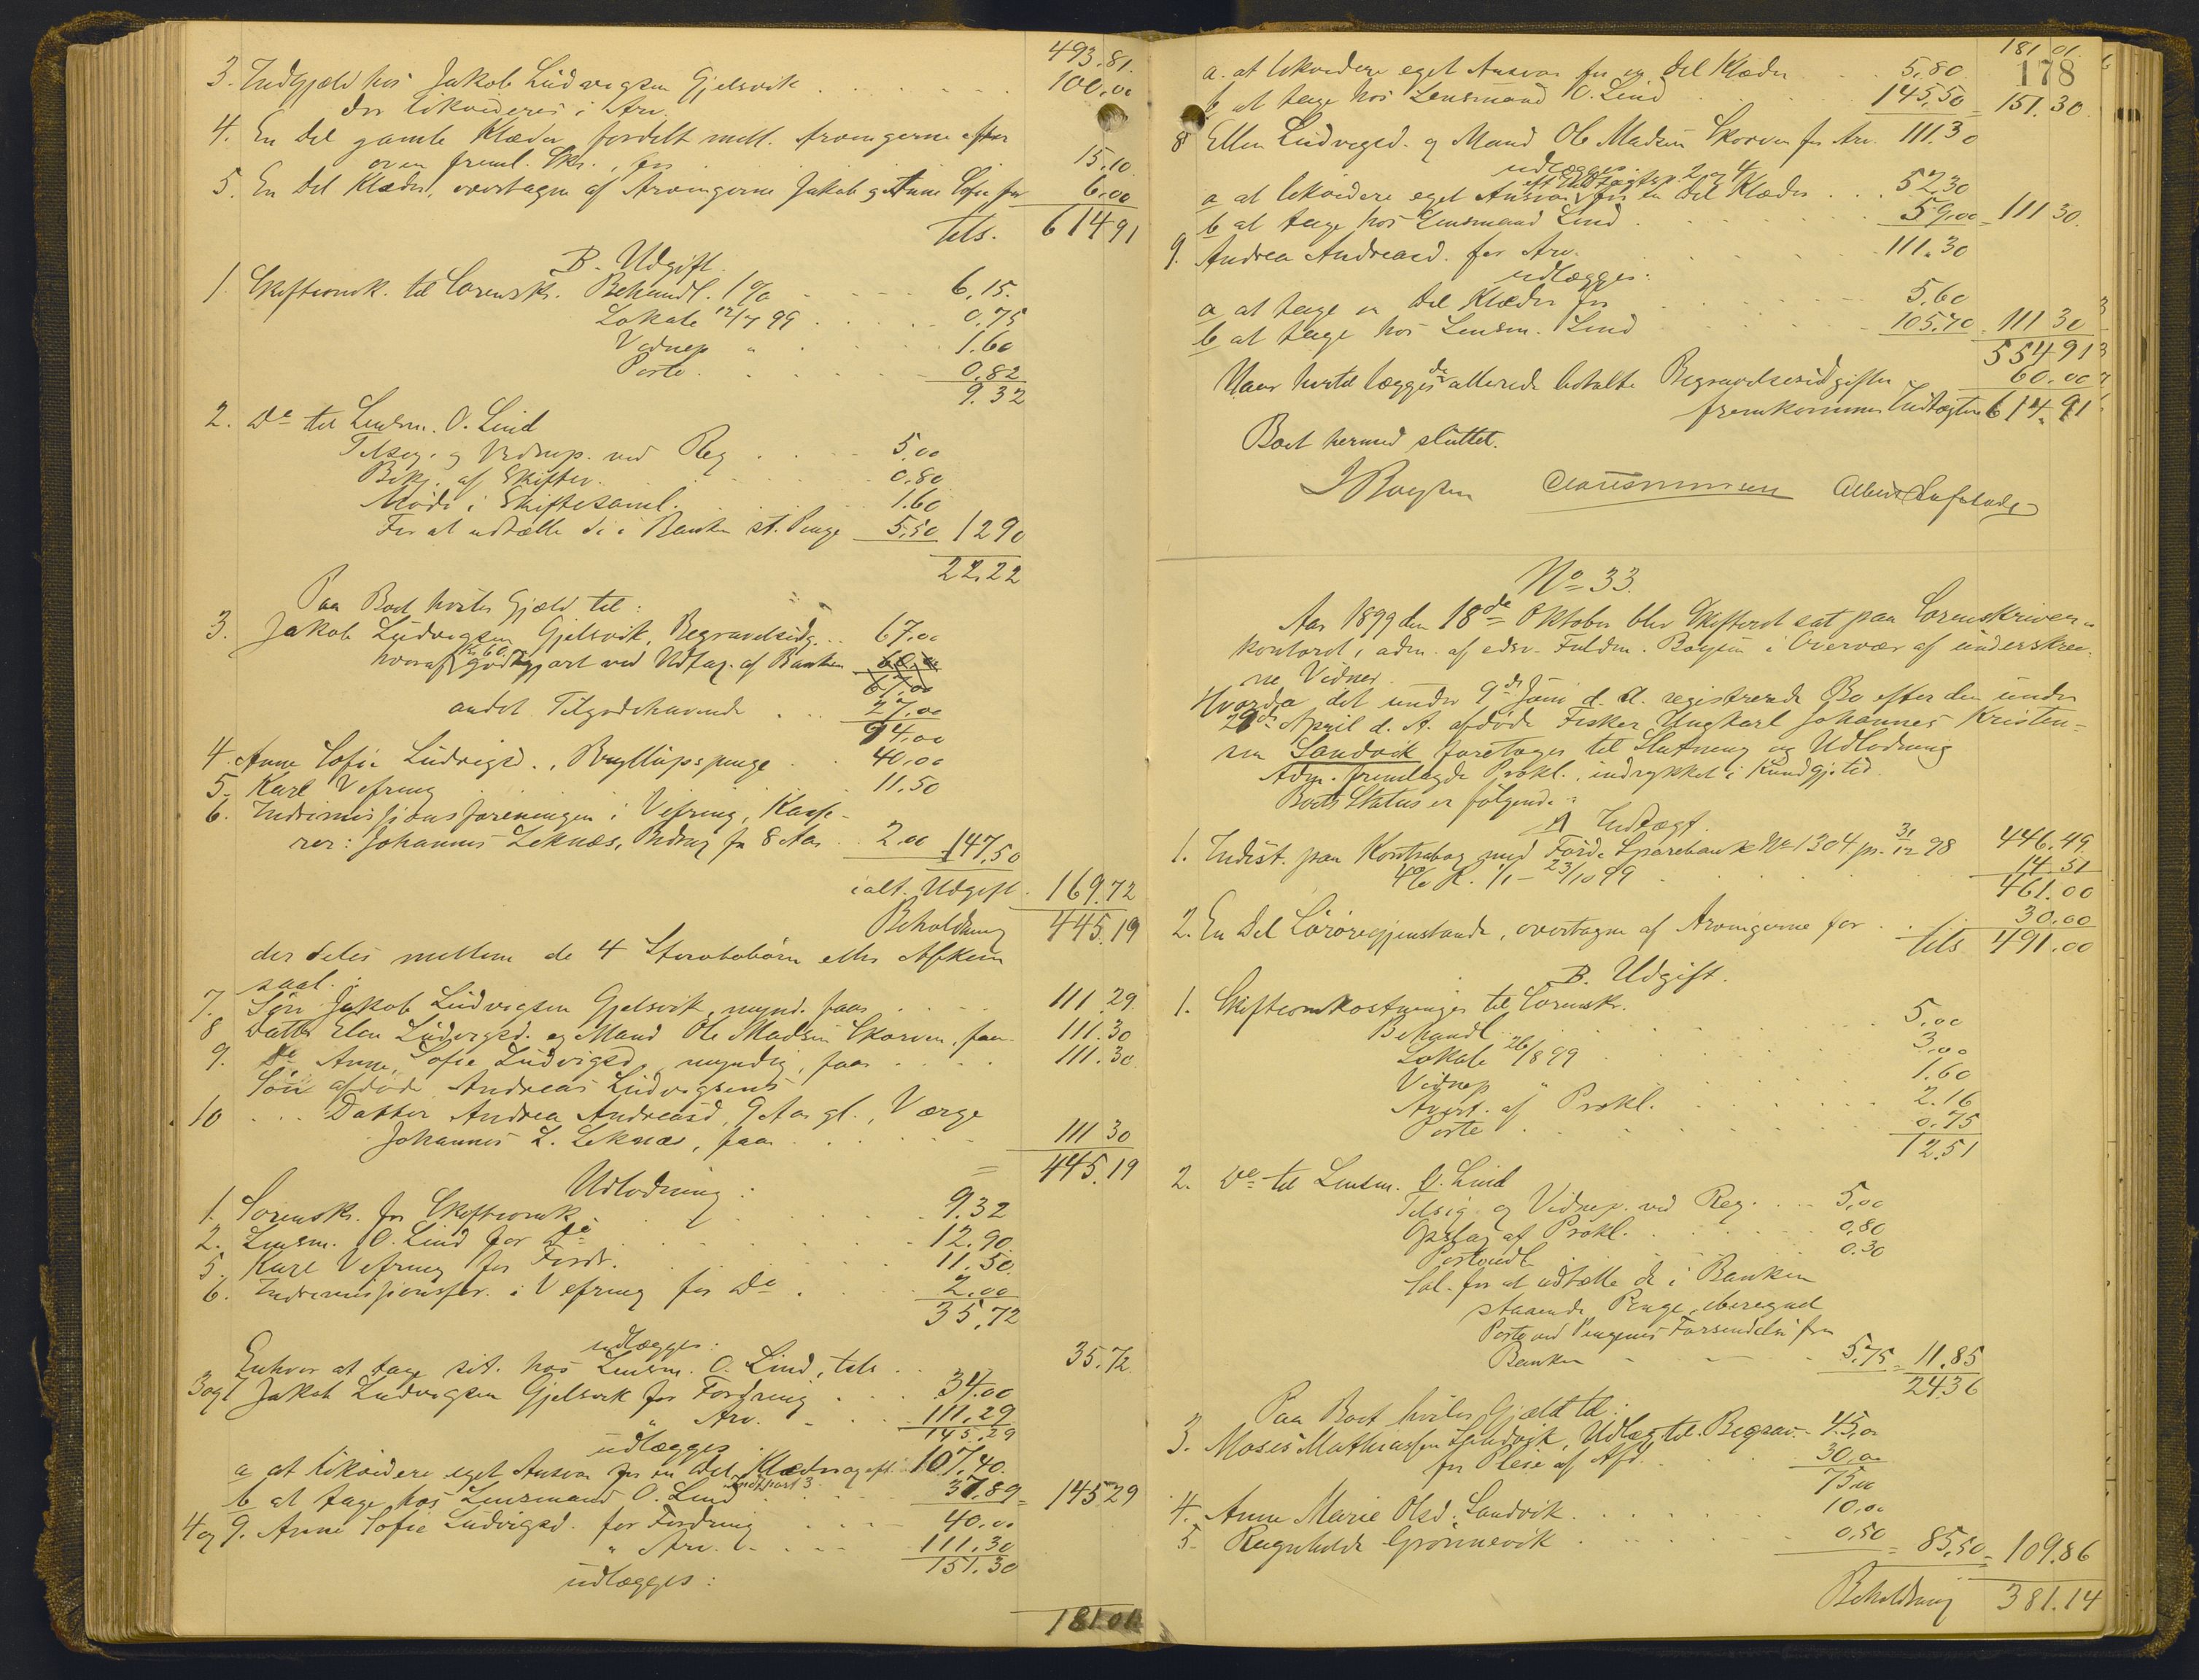 493.81.
3. Indgjæld hos Jakob Ludvigsen Gjelsvik . . . . . . 100,00
der likvideres i Arv.
4. En del gamle Klæder fordelt mell. Arvingerne efter
oven freml. Sk., for . . . . . 15,10
5. En del Klæder, overtagen af Arvingerne Jakob og Anne Sofie for 6,00
tils. 614,91
B. Udgift.
1. Skifteomk. til Sorensk. Behandl. 1% . . . 6,15.
Lokale 12/7 99 . . . . 0,75
Vidnep " . . . . 1.60
Porto . . . . 0,82
9.32
2. Do til Lensm. O. Lind
Tilsig. og Vidnep. ved Reg . . . 5,00
Bekj. af Skiftev. . . . 0,80
Møde i Skiftesaml. . . . 1.60
For at udtælle de i Banken st. Penge 5,50 12 90
22.22
Paa Boet hviler Gjæld til:
3. Jakob Ludvigsen Gjelsvik, Begravelsesudg. . . 67,00
hvoraf Kr 60 godtgjort ved Udtag. af Banken 60,00
67,00
andet Tilgodehavende . . . 27,00
94,00
4. Anne Sofie Ludvigsd., Bryllupspenge . . 40,00
5. Karl Vefring . . . 11,50
6. Indremissionsforeningen i Vefring, Kasse-
rer: Johannes Leknæs, Bidrag for 8 Aar . . 2,00 147,50
ialt. Udgift. 169.72
Beholdning 445.19
der deles mellem de 4 Stervbobørn eller Afkom
saal.:
7. Søn Jakob Ludvigsen Gjelsvik, mynd. faar . . . 111 29.
8 Datter Elen Ludvigsd. og Mand Ole Madsen Skorven, faar 111.30
9. Do Anne Sofie Ludvigsd, myndig, faar . . . . 111.30.
Søn afdøde Andreas Ludvigsens
10 . . . Datter Andrea Andreasd, 9 Aar gl., Værge
Johannes L. Leknæs, faar . . . . . . 111 30
= 445.19
Udlodning:
1. Sorensk. for Skifteomk . . . . 9.32
2. Lensm. O. Lind for Do . . . . 12.90.
5. Karl Vefring for Fordr. . . . . 11.50.
6. Indremissionsfor. i Vefring for Do . . . 2.00
35,72
udlægges:
Enhver at tage sit. hos Lensm. O. Lind, tils . . . 35.72.
3 og 7 Jakob Ludvigsen Gjelsvik for Fordring . . . 34.00
" Arv. . . . 111.29
145.29
udlægges:
a at likvidere eget Ansvar for en del Klæder og eft. 107,40.
Indt.post 3.
b at tage hos Lensmand O. Lind . . . 37,89 = 145 29
4 og 9. Anne Sofie Ludvigsd. for Fordring . . . 40.00
" Arv. . . . 111.30
151.30
udlægges:
181 01
181 01.
178
a. at likvidere eget Ansvar for en del Klæder . . 5,80
b at tage hos Lensmand O. Lind . . . 145,50 = 151.30.
8 Ellen Ludvigsd. og Mand Ole Madsen Skorven for Arv. 111.30
udlægges:
eft Indtægtsp. 2 og 4
a at likvidere eget Ansvar for en del Klæder . . . 52.30
b at tage hos Lensmand Lind . . . 59,00 = 111 30.
9. Andrea Andreasd. for Arv. . . . 111.30
udlægges:
a at tage en del Klæder for . . . 5,60
b at tage hos Lensm. Lind . . . 105,70 = 111 30
554 91
Naar hertil lægges de allerede betalte Begravelsesudgifter 60.00
fremkommer Indtægten 614.91
Boet hermed sluttet.
No 33.
Aar 1899 den 18de Oktober blev Skifteret sat paa Sorenskriver-
kontoret, adm. af edsv. Fuldm. Boysen i Overvær af underskrev-
ne Vidner.
Hvorda det under 9de Juni d. A. registrerede Bo efter den under
29de April d. A. afdøde Fisker Ungkarl Johannes Kristen-
sen Sandvik foretages til Slutning og Udlodning
Adm. fremlagde Prokl., indrykket i Kundgj.tid.
Boets Status er følgende:
A Indtægt.
1. Indest. paa Kontrabog med Førde Sparebank No 1304 pr. 31/12 98 446.49.
4% R. 1/1 - 23/10 99 . . . 14.51
461.00
2. En Del Løsøregjenstande, overtagne af Arvingerne for . . 30.00
tils 491.00
B. Udgift.
1. Skifteomkostninger til Sorensk.
Behandl. . . . 5,00
Lokale 26/8 99 . . . 3,00
Vidnep " . . . 1.60
Avert. af Prokl. . . . 2.16
Porto . . . 0.75
12.51
2. Do til Lensm. O. Lind
Tilsig. og Vidnep. ved Reg. . . . 5,00
Opslag af Prokl. . . . 0,80
Portoudl. 0.30
Sal. for at udtælle de i Banken
staaende Penge, iberegnet
Porto ved Pengenes Forsendelse fra
Banken . . . 5,75 = 11.85
24.36
Paa Boet hviler Gjæld til:
3. Moses Mathiassen Sandvik, Udlæg til Begrav. 45,00
for Pleie af Afd. . . . 30,00
75,00
4. Anne Marie Olsd. Sandvik . . . 10,00
5. Ragnhilde Grønnevik . . . 0,50 = 85,50 = 109.86
Beholdning 381.14